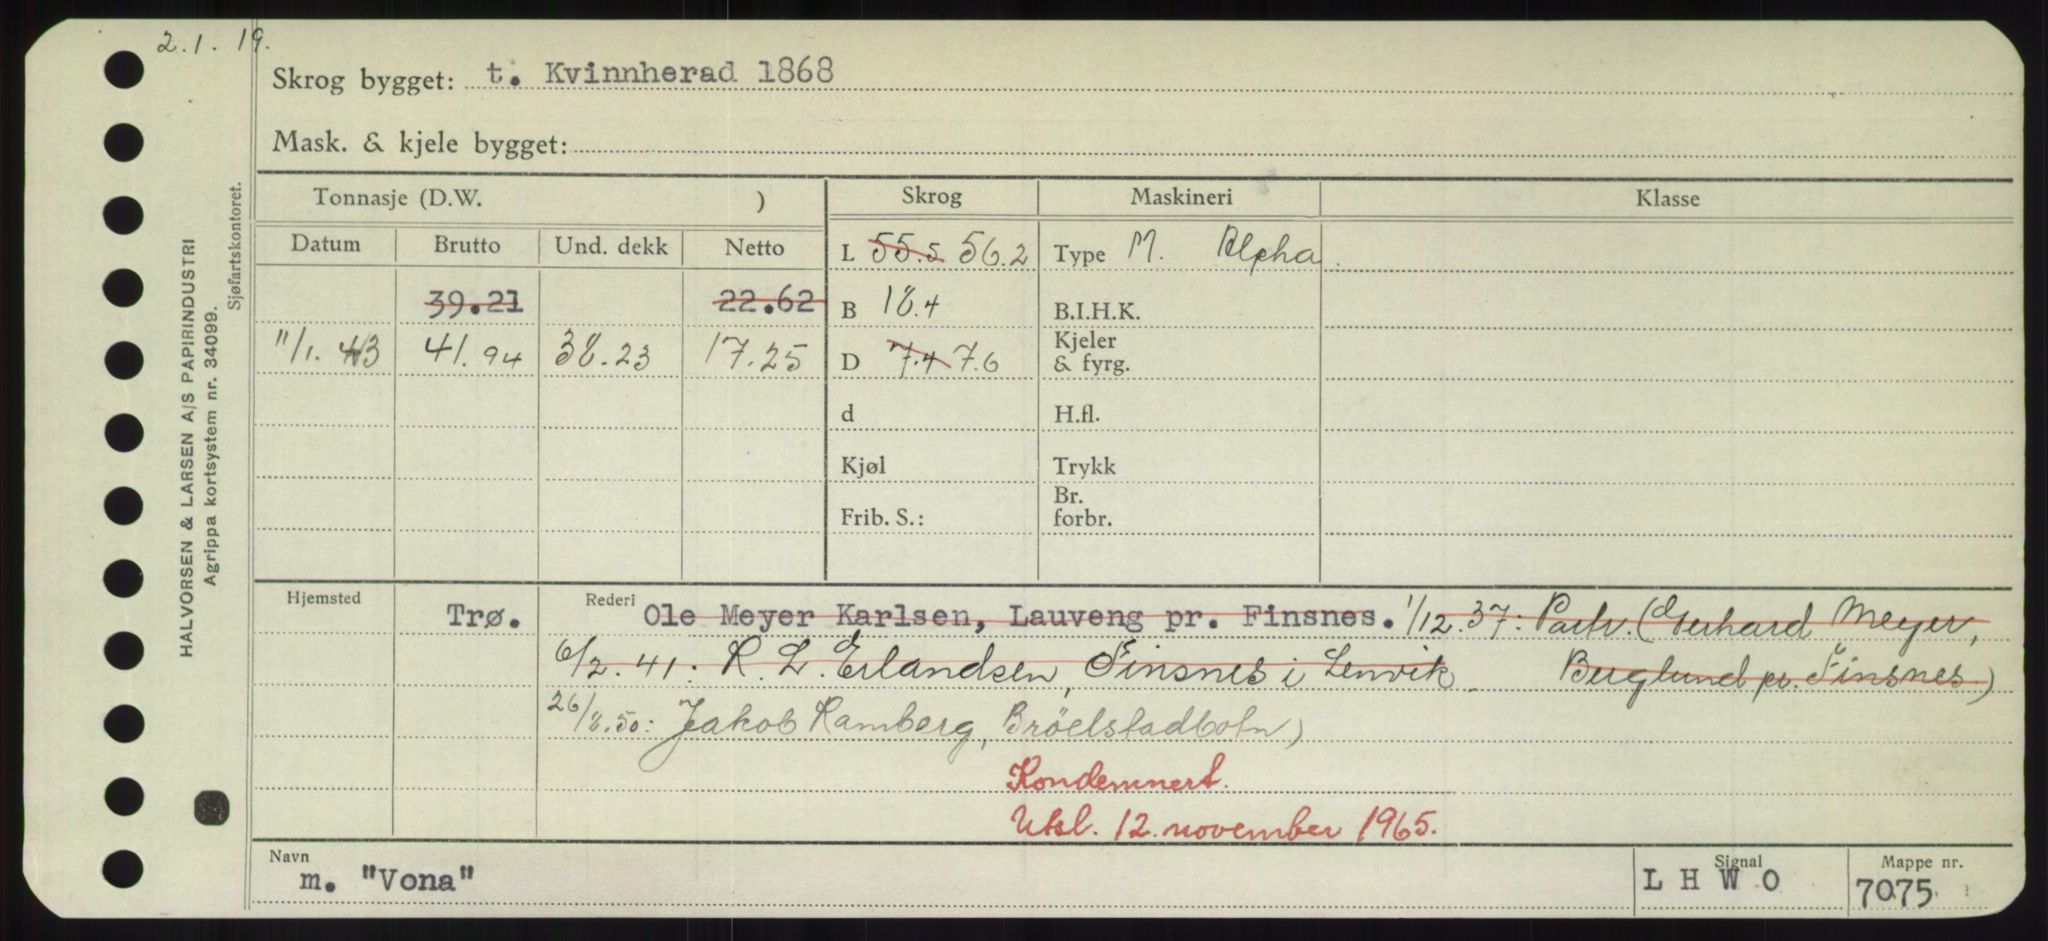 2.1.19.
Skrog bygget: t. Kvinnherad 1868
Mask. & kjele bygget:
Tonnasje (D.W. ) Skrog Maskineri Klasse
Datum Brutto Und. dekk Netto L 55.5 56.2 Type M. Alpha
39.21 22.62 B 18.4 B.I.H.K.
11/1. 43 41.94 38.23 17.25 D 7.4 7.6 Kjeler
& fyrg.
d H.fl.
Kjøl Trykk
Frib. S.: Br.
forbr.
Hjemsted Trø. Rederi Ole Meyer Karlsen, Lauveng pr. Finsnes. 1/12.37: Partr. (Gerhard Meyer,
6/2.41: R. L. Erlandsen, Finsnes i Lenvik Berglund pr. Finsnes)
26/8.50: Jakob Ramberg,
Kondemnert.
Utsl. 12. november 1965.
Navn m. "Vona" Signal L H W O Mappe nr. 7075
HALVORSEN & LARSEN A/S PAPIRINDUSTRI
Agrippa kortsystem nr. 34099.
Sjøfartskontoret.